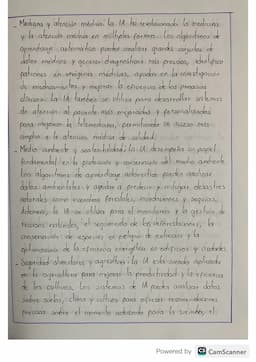 - Medicina y atención médica: la IA ha revolucionado la medicina
y la atención médica en múltiples formas. Los algoritmos de
aprendizaje automático pueden analizar grandes conjuntos de
datos médicos y generar diagnósticos más precisos, identificar
patrones en imágenes médicas, ayudar en la investigación
de medicamentos y mejorar la eficiencia de los
clínicos. La IA también se utiliza para desarrollar sistemas
de atención al paciente más
para mejorar la telemedicina, permitiendo un acceso más
amplio a la atención médica de calidad.
- Medio ambiente y sostenibilidad: la IA desempeña un papel
fundamental en la protección y conservación del medio ambiente.
Los algoritmos de aprendizaje automático pueden analizar
datos ambientales y ayudar a predecir y mitigar desastres
naturales, como incendios forestales, inundaciones y sequías.
Además, la IA se utiliza para el monitoreo y la gestión de
recursos naturales, el seguimiento de la
conservación de especies en peligro de extinción y la
optimización de la eficiencia energética en edificios y ciudades.
- Seguridad alimentaria y agricultura: la IA está siendo aplicada
en la agricultura para mejorar la productividad y la eficiencia
de los cultivos. Los sistemas de IA pueden analizar datos
sobre suelos, clima y cultivos para ofrecer recomendaciones
precisas sobre el momento adecuado para la siembra, el
Powered by CS CamScanner